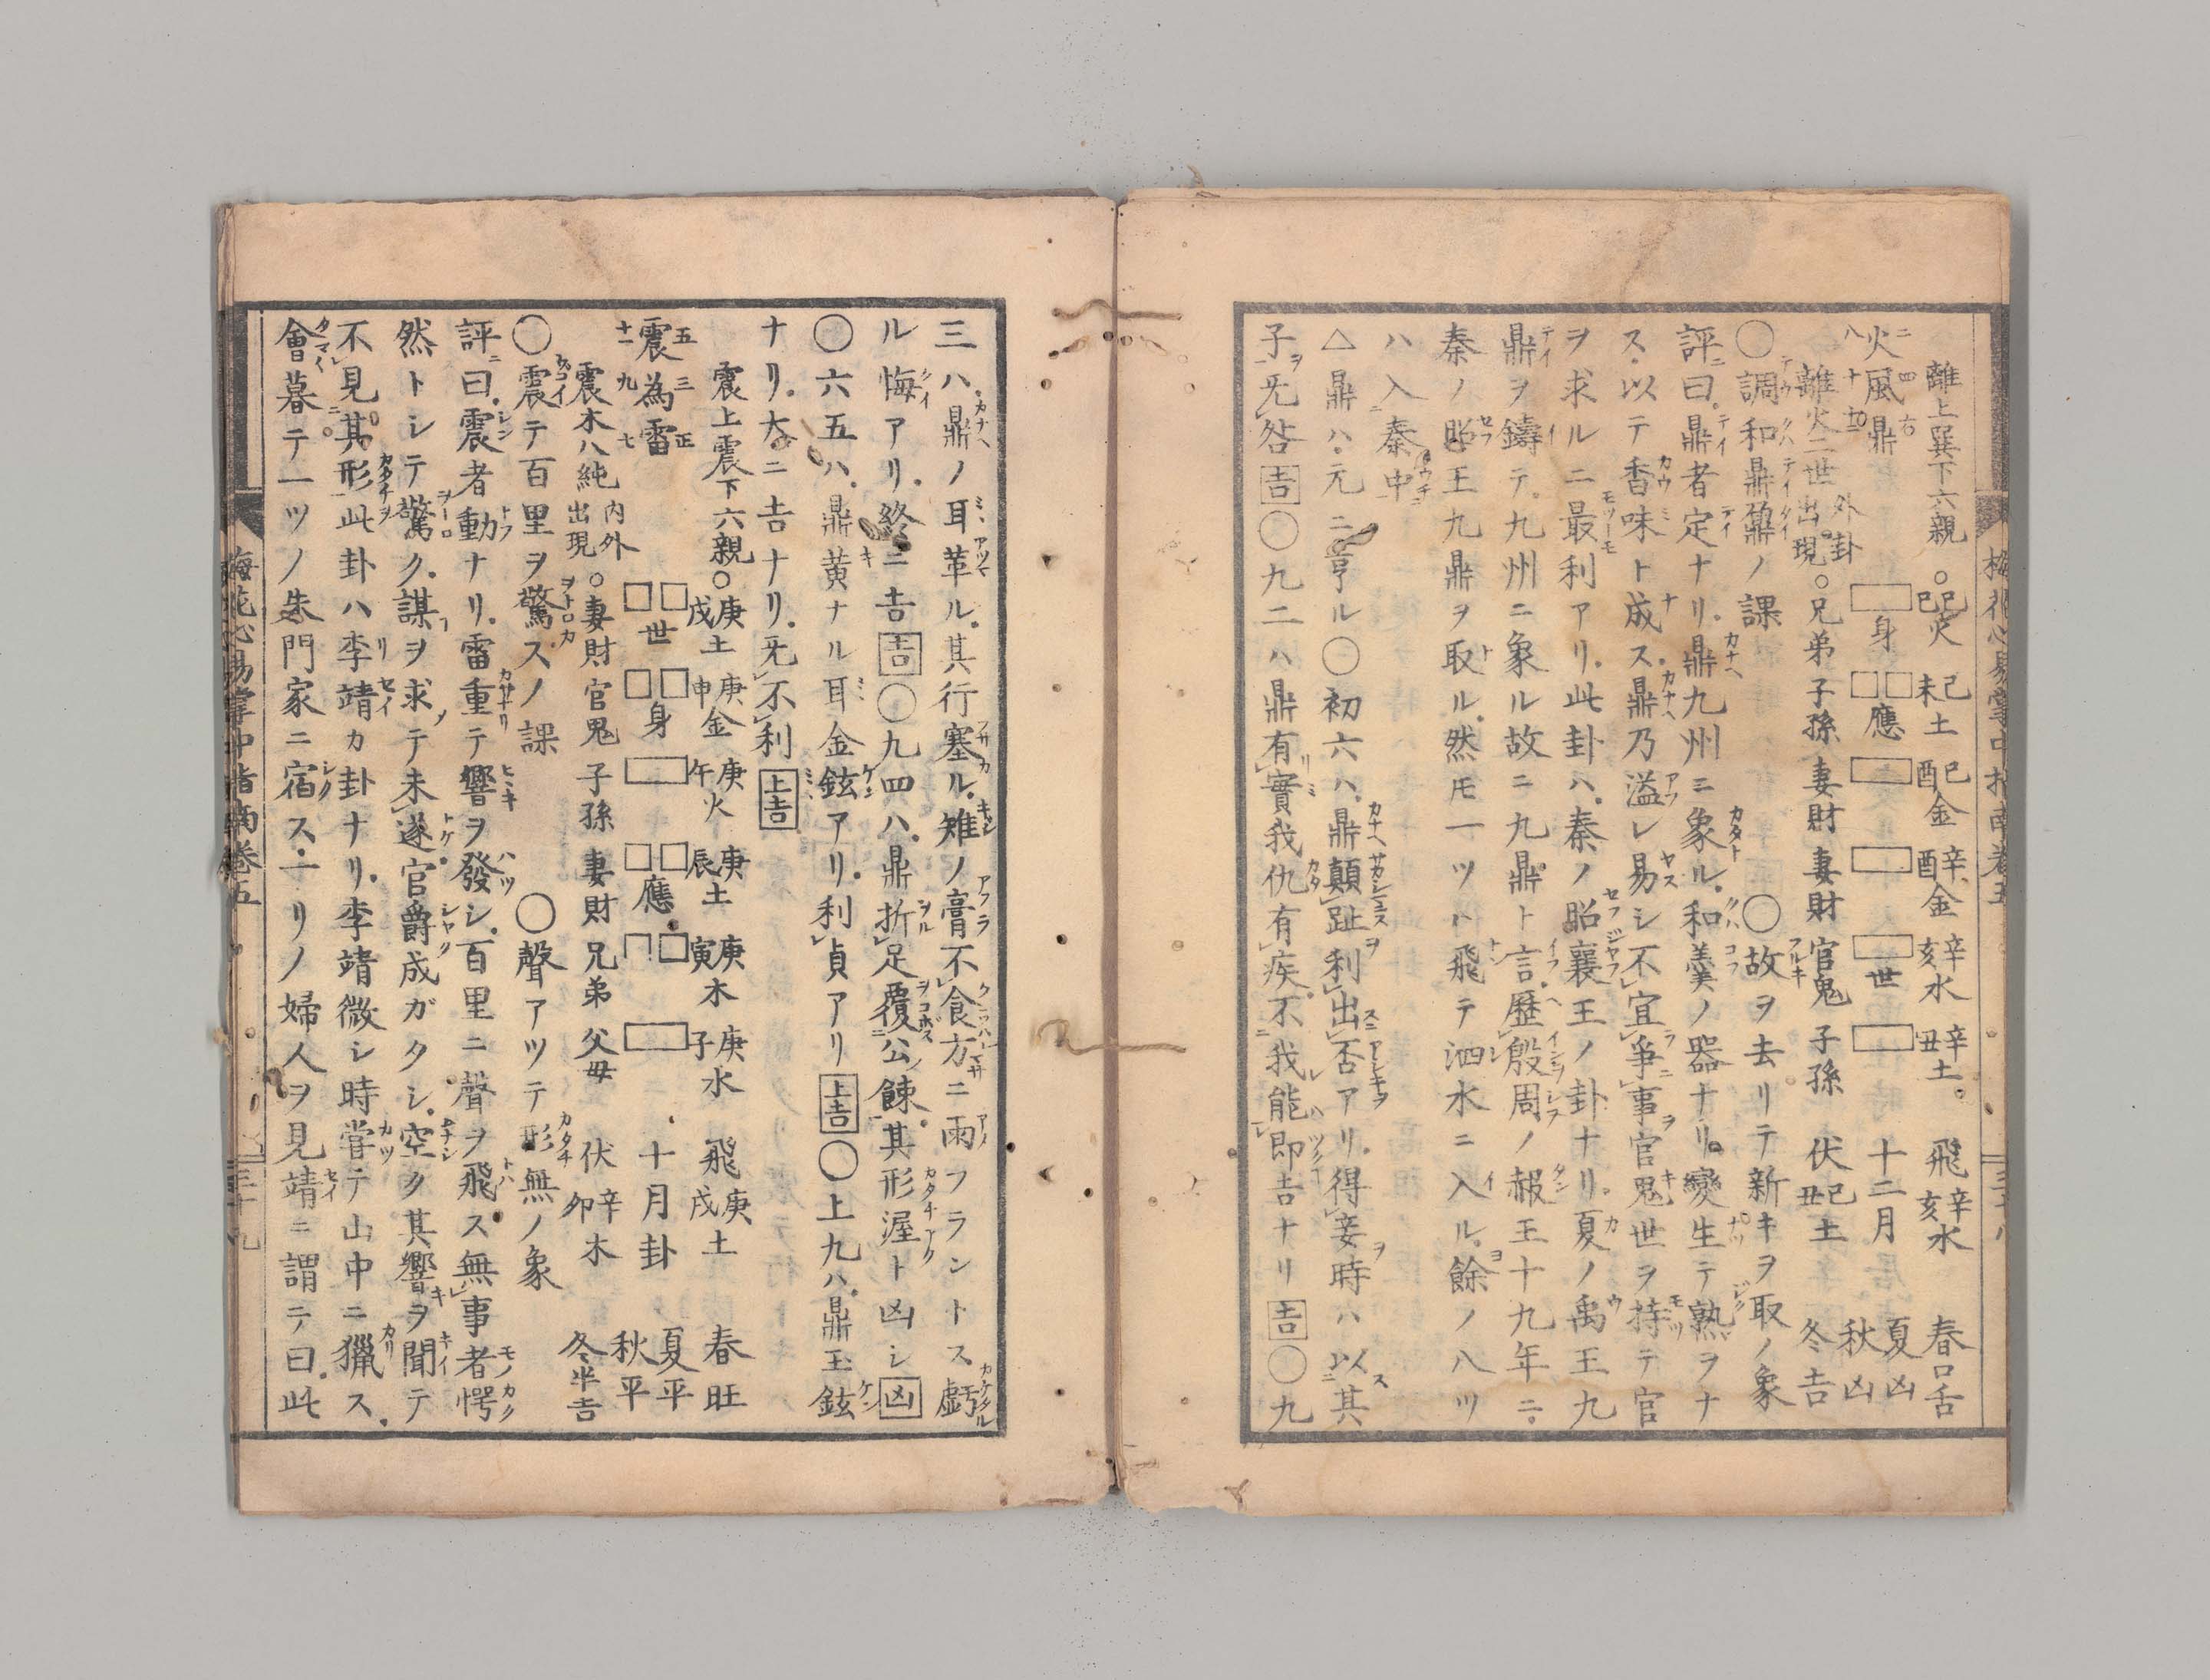 離上巽下六親○己巳火 己未土 己酉金 辛酉金 辛亥水 辛丑土。 飛辛亥水 春口舌
火風鼎 身 應 世 十二月 夏凶 秋凶
離火二世 外卦出現○兄弟 子孫 妻財 妻財 官鬼 子孫 伏己丑土 冬吉
○調和鼎鼐ノ課 ○故ヲ去リテ新キヲ取ノ象
評曰鼎者定ナリ鼎九州ニ象ル和羹ノ器ナリ變生テ熟ヲナ
ス以テ香味ト成ス鼎乃溢レ易シ不宜爭事官鬼世ヲ持テ官
ヲ求ルニ最利アリ此卦ハ秦ノ昭襄王ノ卦ナリ夏ノ禹王九
鼎ヲ鑄テ九州ニ象ル故ニ九鼎ト言歷殷周ノ赧王十九年ニ
秦ノ昭王九鼎ヲ取ル然モ一ツハ飛テ泗水ニ入ル餘ノ八ツ
ハ入秦中
△鼎ハ元ニ亨ル○初六ハ鼎顛趾利出否アリ得妾時ハ以其
子ヲ无咎吉○九二ハ鼎有實我仇有疾不我能即吉ナリ吉○九
三ハ鼎ノ耳革ル其行塞ル雉ノ膏不食方ニ雨フラントス虧
ル悔アリ終ニ吉吉○九四ハ鼎折足覆公餗其形渥ト凶シ凶
○六五ハ鼎黄ナル耳金鉉アリ利貞アリ上吉○上九ハ鼎玉鉉
ナリ大ニ吉ナリ无不利上吉
震上震下六親○庚戌土 庚申金 庚午火 庚辰土 庚寅木 庚子水 飛庚戌土 春旺
震為雷 世 身 應 十月卦 夏平 秋平
震木八純 内外出現○妻財 官鬼 子孫 妻財 兄弟 父母 伏辛卯木 冬半吉
○震テ百里ヲ驚スノ課 ○聲アツテ形無ノ象
評曰震者動ナリ雷重テ響ヲ發シ百里ニ聲ヲ飛ス無事者愕
然トシテ驚ク謀ヲ求テ未遂官爵成ガタシ空ク其響ヲ聞テ
不見其形此卦ハ李靖カ卦ナリ李靖微シ時嘗テ山中ニ獵ス
會暮テ一ツノ朱門家ニ宿ス一リノ婦人ヲ見靖ニ謂テ曰此
梅花心易掌中指南巻五